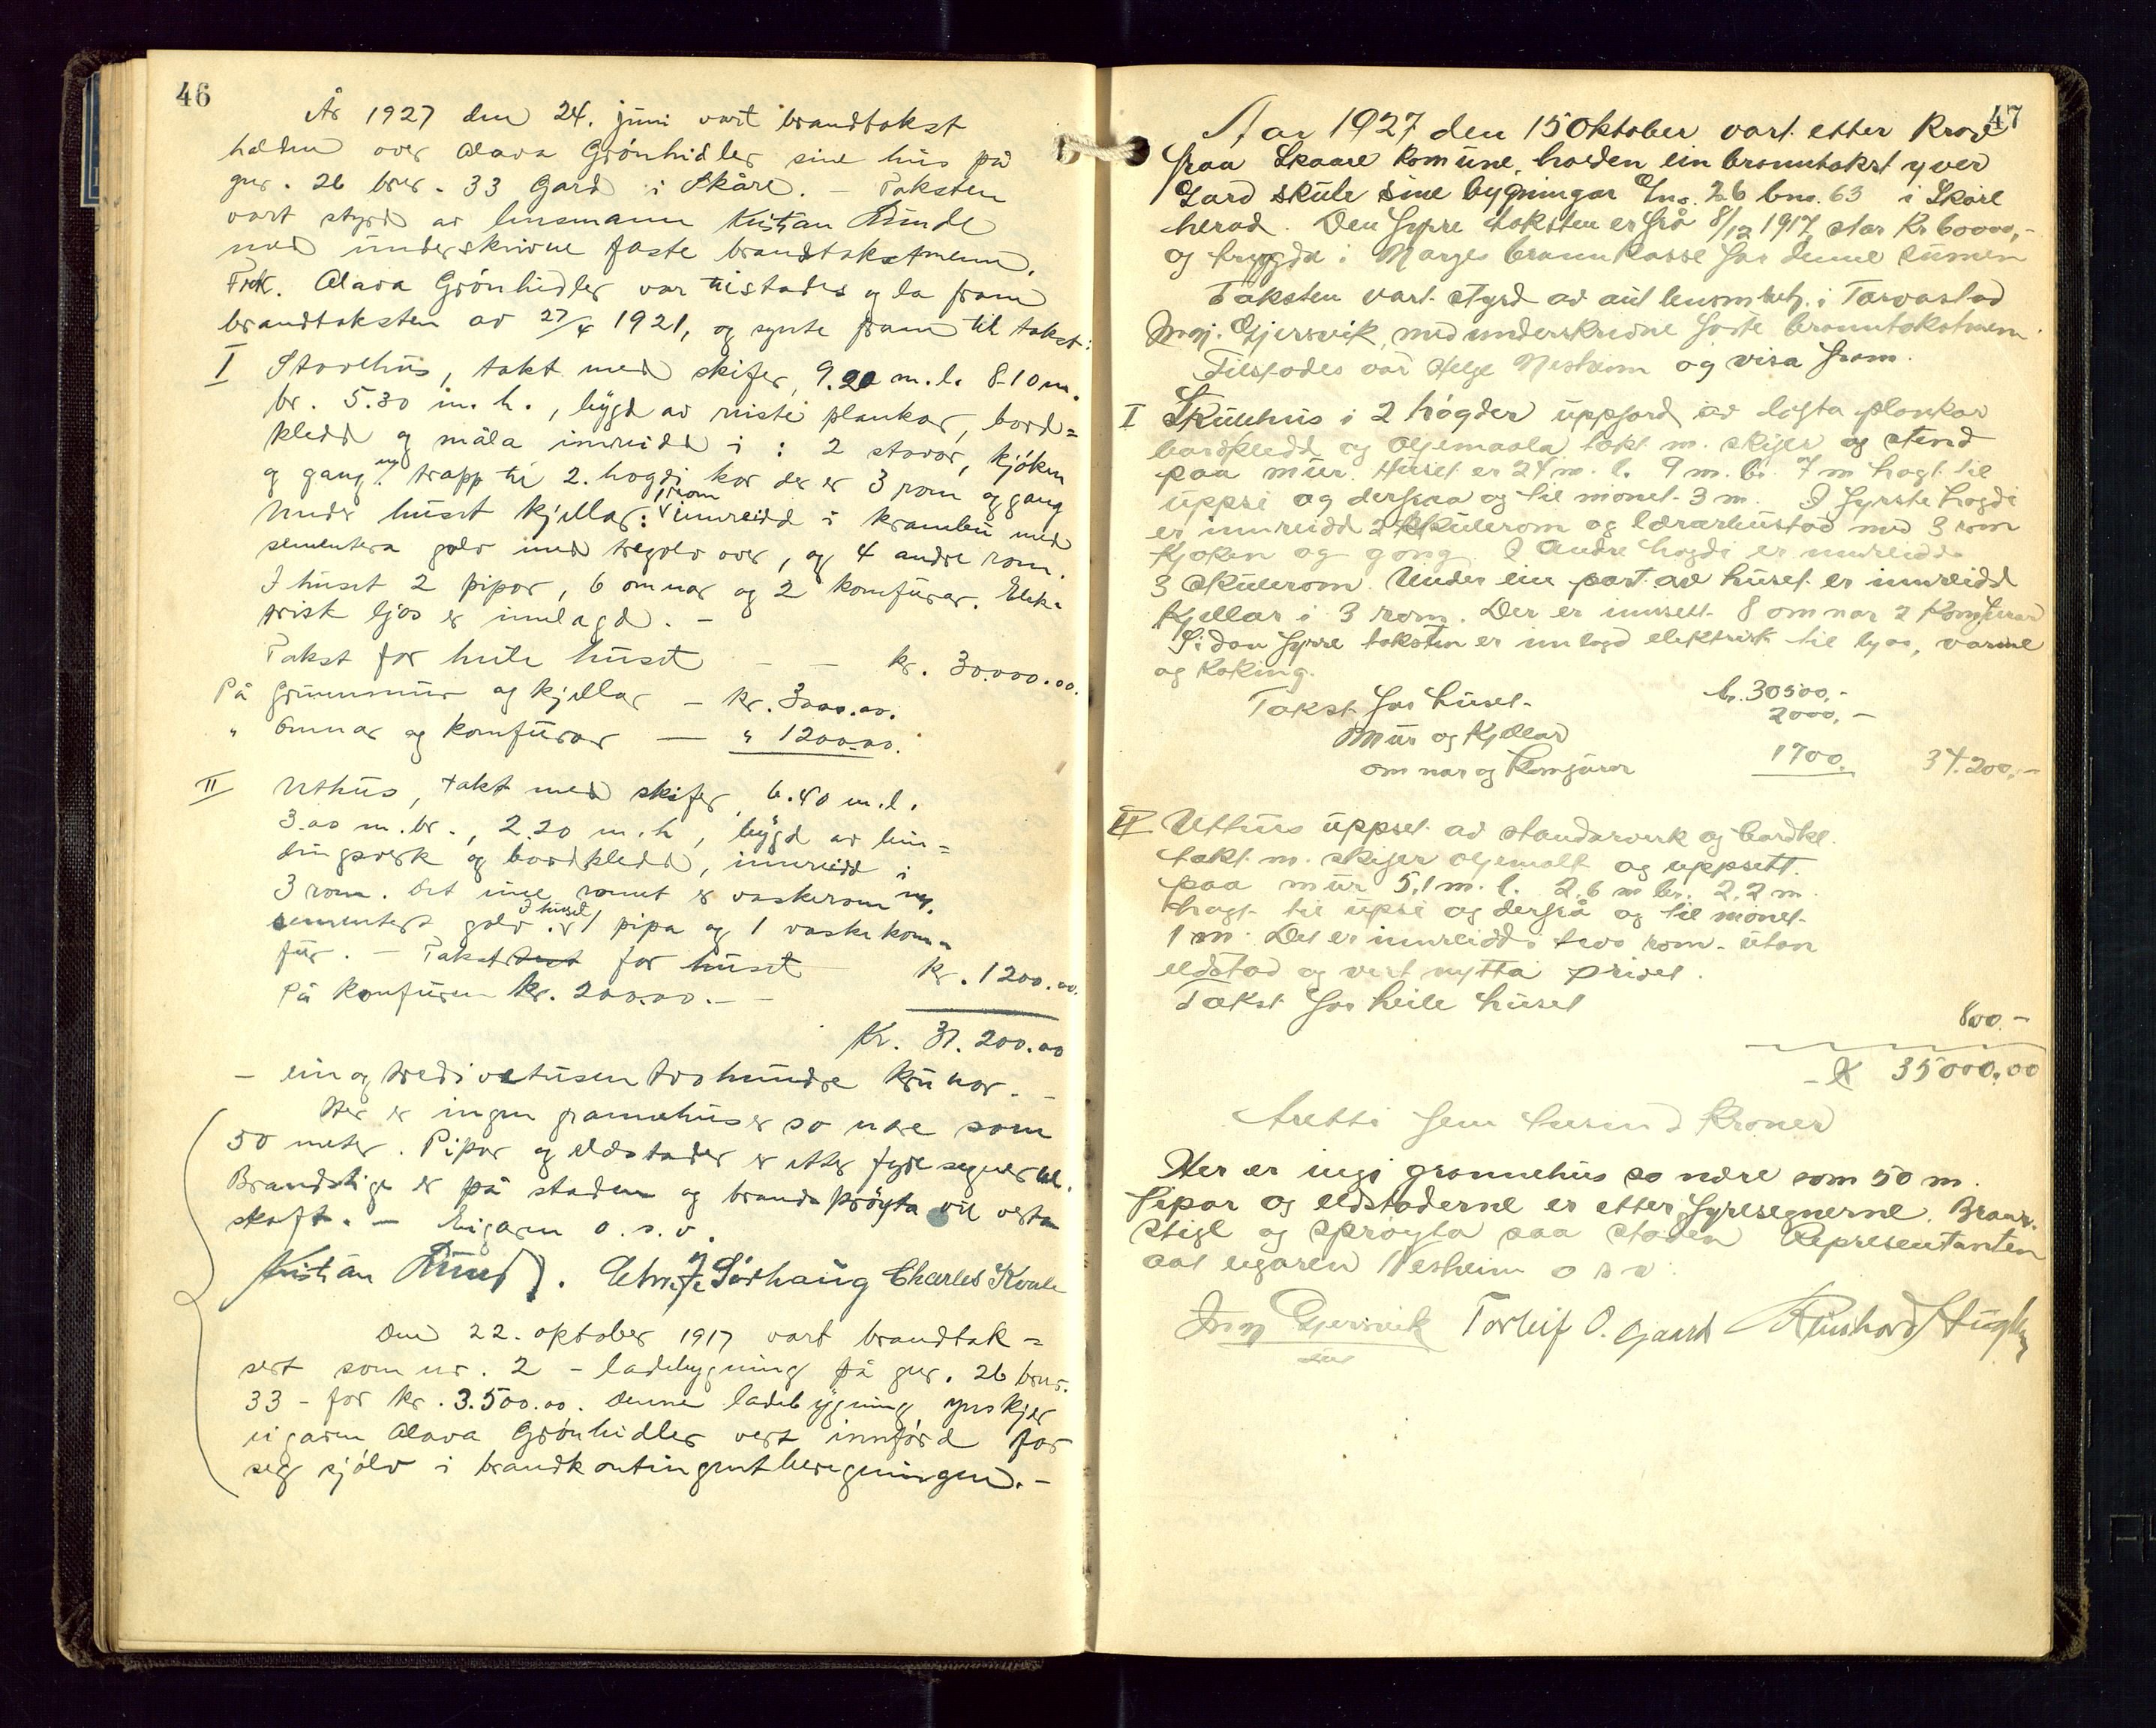 46
År 1927 den 24. juni vart brandtakst
halden over Alava Grønhidler sine hus på
gnr. 26 bnr. 33 Gard i Skåre. – Taksten
vart styrd av lensmann Kristian Lunde
med underskrivne faste brandtakstmenn.
Frk. Alava Grønhidler var tilstades og la fram
brandtaksten av 27/4 1921, og synte fram til takst:
I Stovehus, takt med skifer, 9.20 m.l. 8.10 m.
br. 5.30 m. h., bygd av reiste plankar, bord=
kledd og måla innreidd i : 2 stovor, kjøken
og gang m/ trapp til 2. høgdi kor der er 3 rom og gang
Under huset kjellar: 1 rom innreidd i krambu med
sementera golv med tregolv over, og 4 andre rom.
I huset 2 pipor, 6 omnar og 2 komfurar. Elek-
trisk ljos er innlagd. –
Takst for heile huset – – kr. 30.000.00.
På Grunnmur og kjellar – kr. 3000.00.
" Omnar og komfurar — " 1200.00.
II Uthus, takt med skifer, 6.40 m.l.
3.00 m.br., 2.20 m.h, bygd av bin=
dingsverk og bordkledd, innreidd i
3 rom. Det eine romet er vaskerom m.
sementert golv. I huset er 1 pipa og 1 vaskekom-
fur. – Takst for huset kr. 1200.00.
På komfuren kr. 200.00. – –
Kr. 31.200.00
– ein og tredivetusen tvohundre krunor. –
Her er ingen grannehus er so nære som
50 meter. Pipor og eldstader er etter fyresegner al.
Brandstige er på staden og brandsprøyta vil verta
skaft. – Eigaren o. s. v.
Kristian Lunde. Elm. J. Sørhaug Charles Kvale
Den 22. oktober 1917 vart brandtak=
sert som nr. 2 – ladebygning på gnr. 26 bnr.
33 – for kr. 3.500.00. Denne ladebygning ynskjer
eigaren Alava Grønhidler vert innførd for
seg sjølv i brandkontingentberegningen. –
47
Aar 1927, den 15 Oktober vart etter Krav
fraa Skaare Komune, halden ein branntakst yver
Gard skule sine bygningar Gno. 26 bno. 63 i Skåre
herad. Den fyrre taksten er frå 8/12 1917, stor Kr 60000,-
og trygda i Norges brannkasse for denne sumen
Taksten vart styrd av aut lensm btj. i Torvastad
Ingj. Gjersvik, med underskrivne faste branntakstmenn
Tilstades var Helge Nesheim og visa fram.
I Skulehus i 2 høgder uppførd av lafta plankar
bordkledd og oljemaala takt m. skifer og stend
paa mur. Huset er 24 m. l. 9 m. br. 7 m høgt til
uppsi og derfraa og til mønet 3 m. I fyrste høgdi
er innreidd 2 skulerom og lærarbustad med 3 rom
kjøken og gong. I andre høgdi er innreidd
3 skulerom. Under ein part av huset er innreidd
kjellar i 3 rom. Der er innsett 8 omnar 2 Komfurar
Sidan fyrre taksten er innlagd elektrisk til lyos, varme
og koking.
Takst for huset kr. 30500,-
Mur og Kjellar 2000,-
omnar og Komfurar 1700. 34.200,-
II Uthus uppset av standarverk og bordkl.
takt m. skifer oljemalt og uppsett.
paa mur 5,1 m. l. 2,6 m br. 2,2 m.
høgt til upsi og derfrå og til mønet
1 m. Det er innreidd i tvo rom utan
eldstad og vert nytta privet.
Takst for heile huset
800.–
K 35000,00
tretti fem tusind Kroner
Her er ingi grannehus so nære som 50 m.
Pipor og eldstaderne er etter fyresegnerne. Brann-
stige og sprøyta paa staden Representanten
aat eigaren Nesheim o s v.
Ingj Gjersvik Torleif O. Gaard Reinhard Haugley